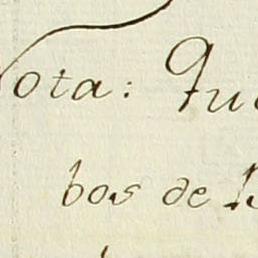 Nota: Que
bos de